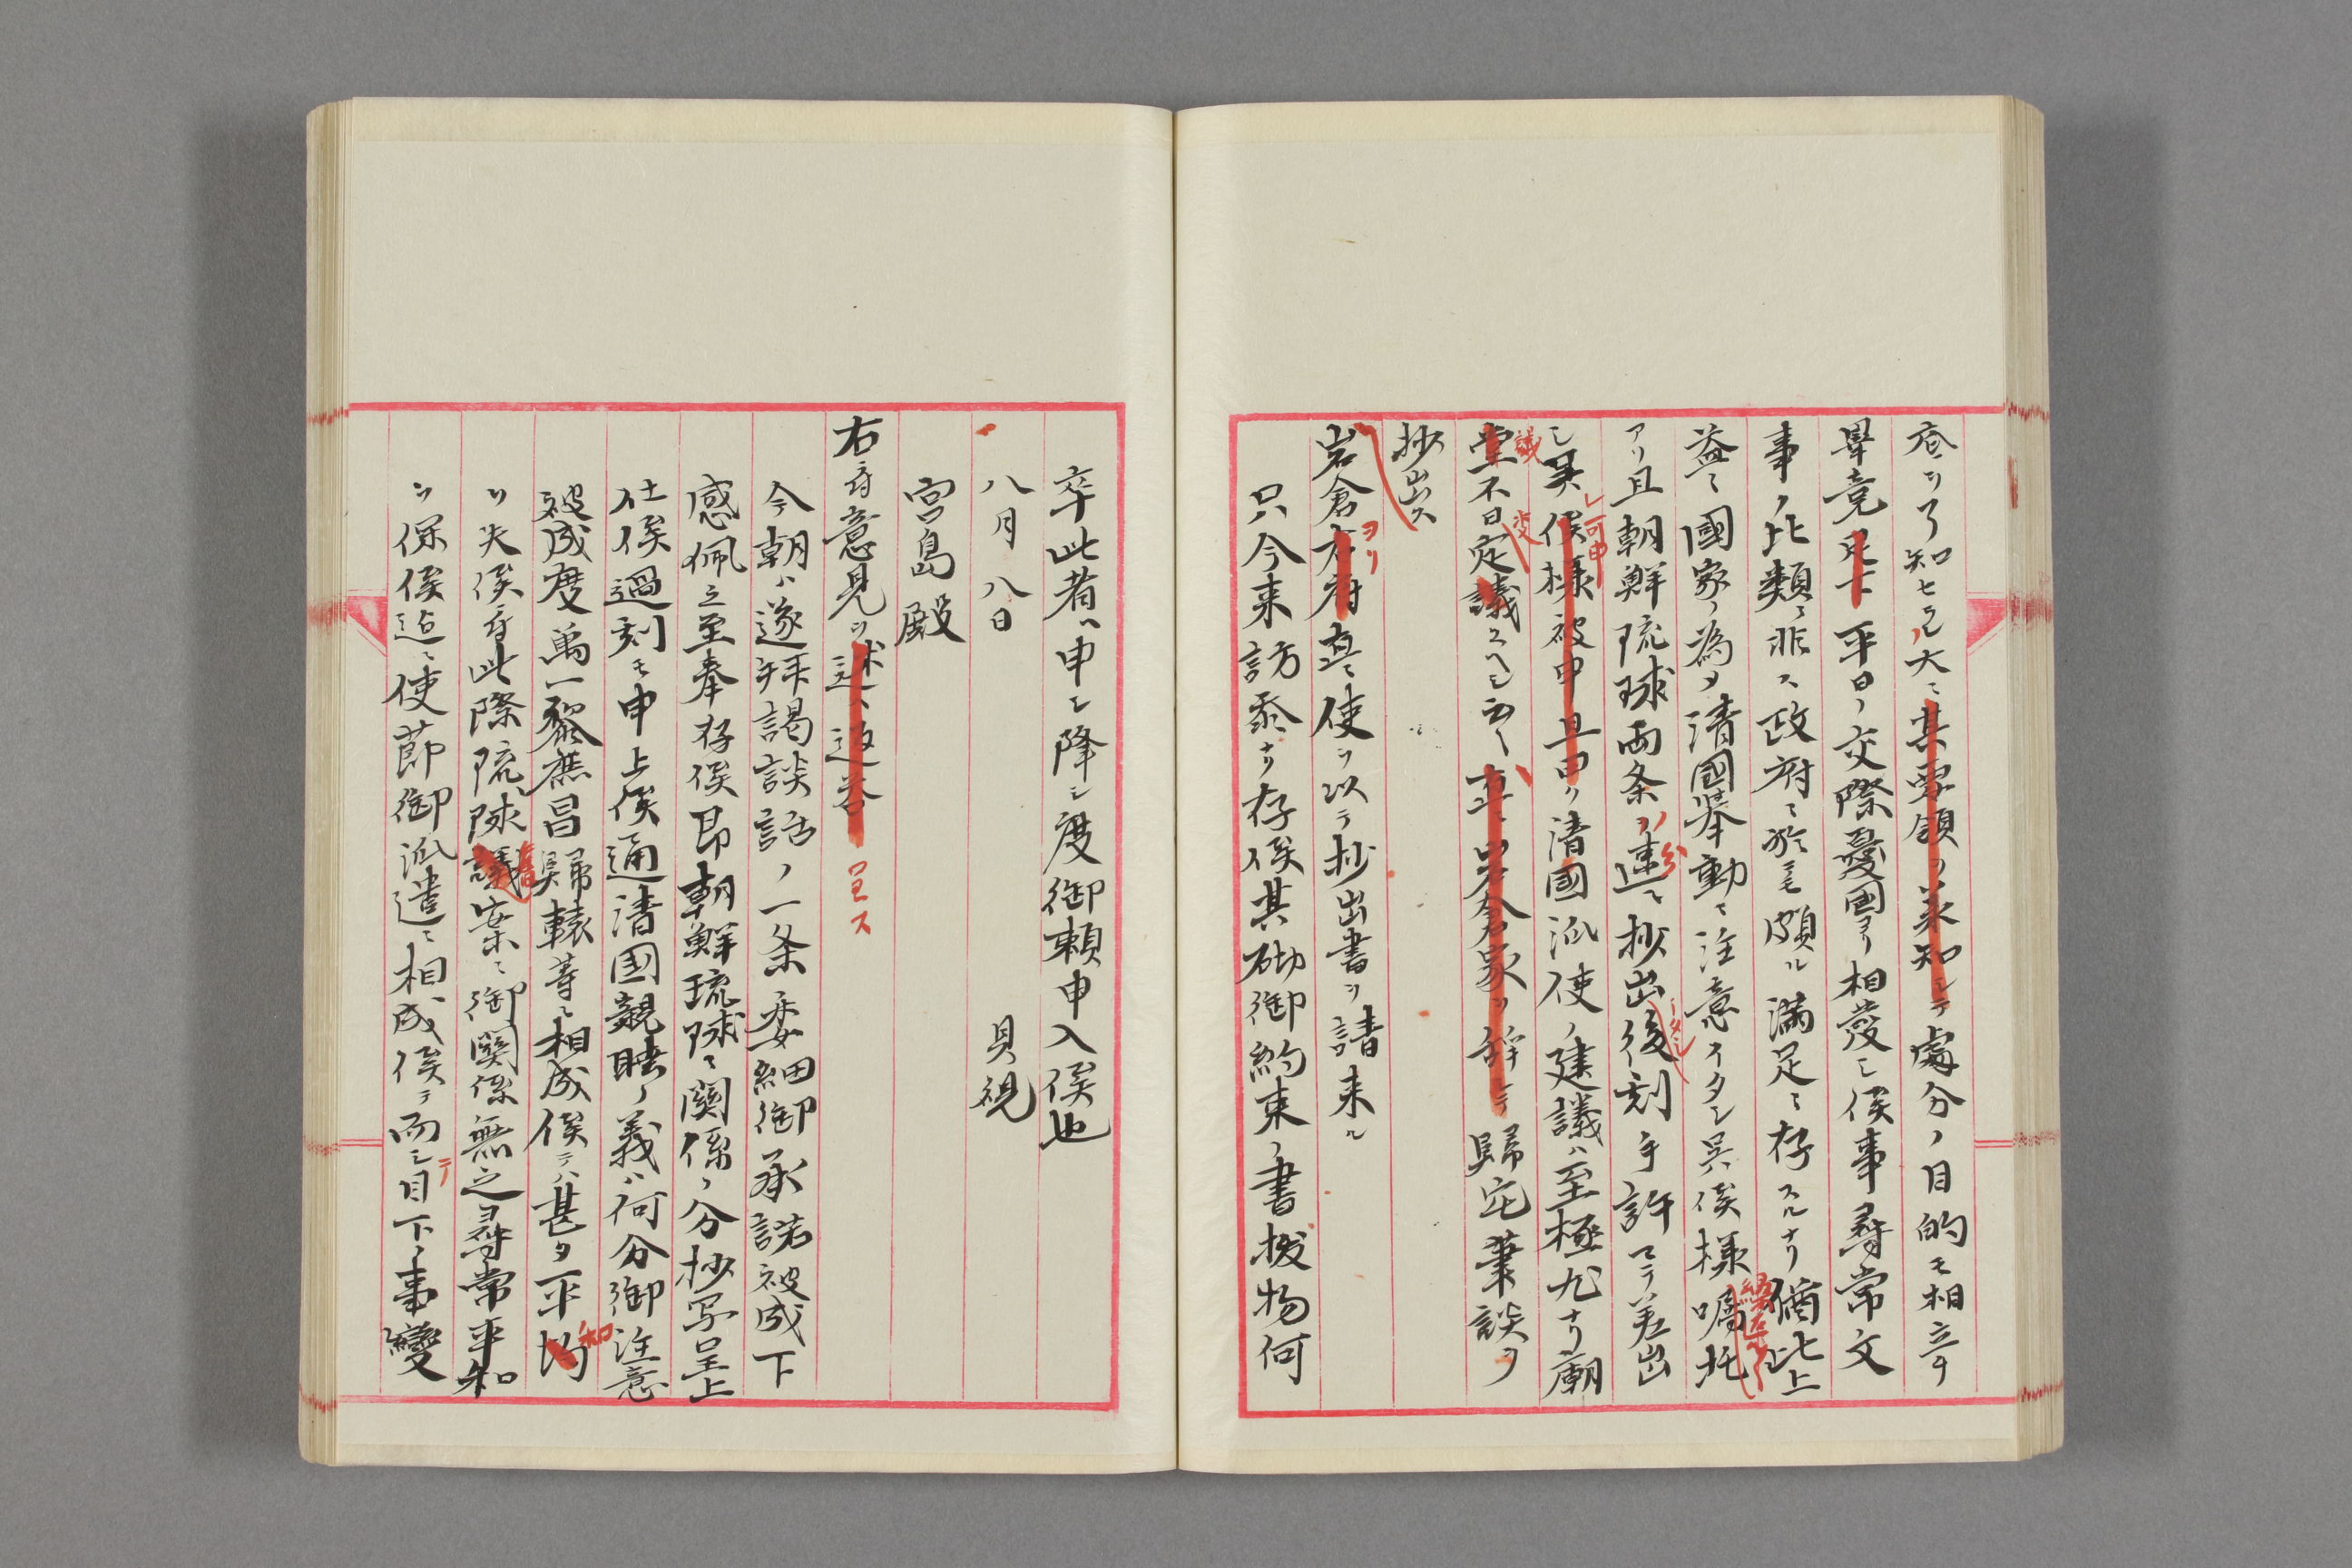 底ヲ了知セラレ大ニ其要領ヲ承知シテ處分ノ目的モ相立チ
畢竟足下平日ノ交際憂國ヨリ相發シ候事尋常文
事ノ比類ニ非ス政府ニ於モ頗ル満足ニ存スルナリ猶此上
益々國家ノ為メ清國挙動ニ注意イタシ呉候様嘱托
アリ且朝鮮琉球両条ヲ速ニ抄出後刻手許マテ差出
シ呉候様被申且曰ク清國派使ノ建議ハ至極尤ナリ廟
堂不日定議スヘシ云々直ニ岩倉家ヲ辞シテ歸宅筆談ヲ
抄出ス
岩倉右府直ニ使ヲ以テ抄出書ヲ請来ル
只今来訪忝ナク存候其砌御約束ノ書拔物何
卒此者ヘ申シ降シ度御頼申入候也
八月八日 具視
宮島殿
右府意見ヲ述ヘ返答
呈ス
今朝ハ遂拜謁談話ノ一条委細御承諾被成下
感佩之至奉存候即朝鮮琉球ニ関係ノ分抄写呈上
仕候過刻モ申上候通清國親睦ノ義ハ何分御注意
被成度萬一黎庶昌歸轅等ニ相成候テハ甚タ平均
ヲ失候付此際琉球議案ニ御関係無之尋常平和
ヲ保候迄ニ使節御派遣ニ相成候テ而シ目下ノ事變